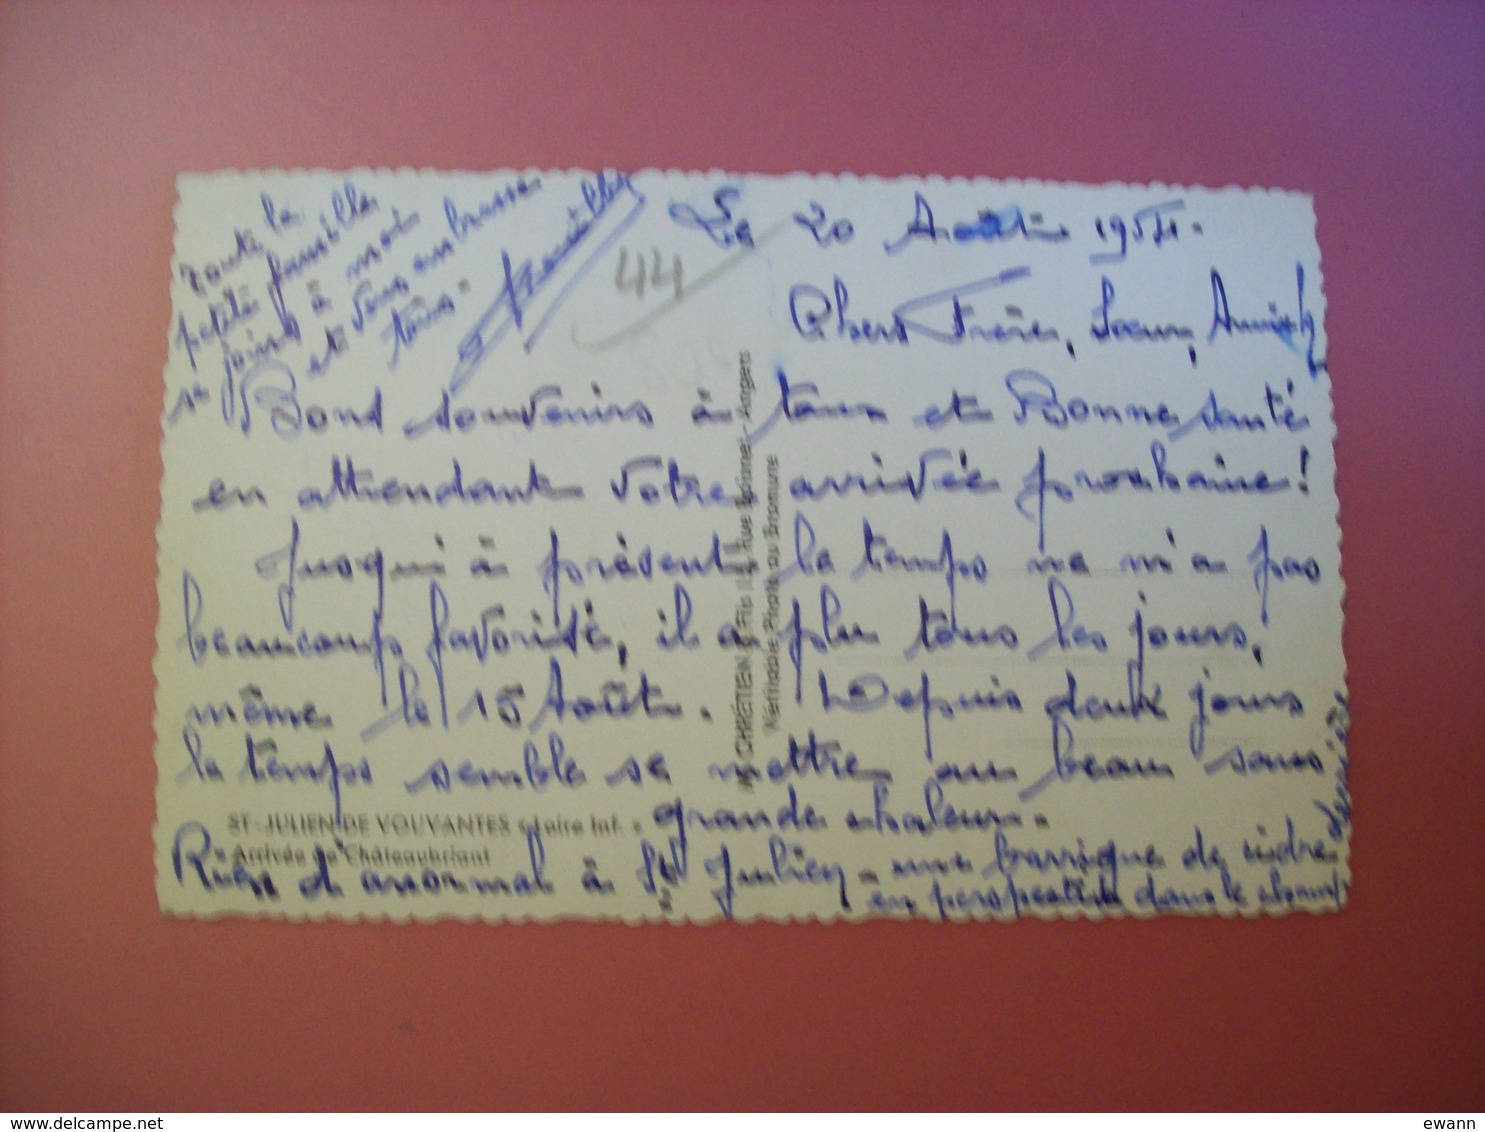 Le 20 Août 1954.
44
Chers Frère, Soeur,
Bons souvenirs à tous et Bonne santé
en attendant votre arrivée prochaine!
Jusqu'à présent le temps ne m'a pas
beaucoup favorisé, il a plu tous les jours,
même le 15 Août. Depuis deux jours
le temps semble se mettre au beau sans
grande chaleur.
Rien d'anormal à St Julien - une barrique de cidre
en perspective dans le champ
derrière
toute la
petite famille
se joint à moi
et vous embrasse
tous.
ST-JULIEN DE VOUVANTES « Loire Inf. »
Arrivée de Châteaubriant
CHRÉTIEN & Fils Rue - Angers
Véritable Photo au Bromure
www.delcampe.net
ewann